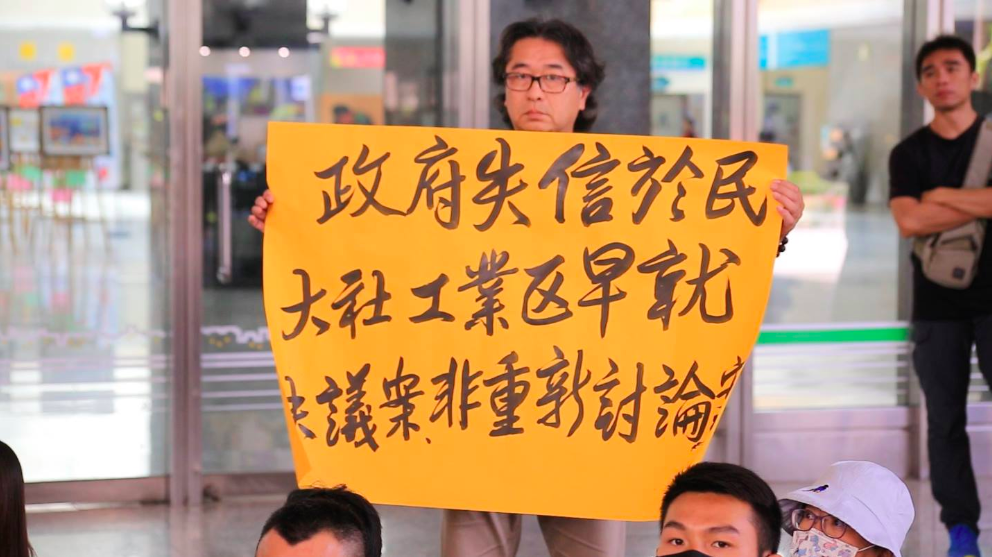 政府失信於民
大社工業区早就
議案.非重新討論